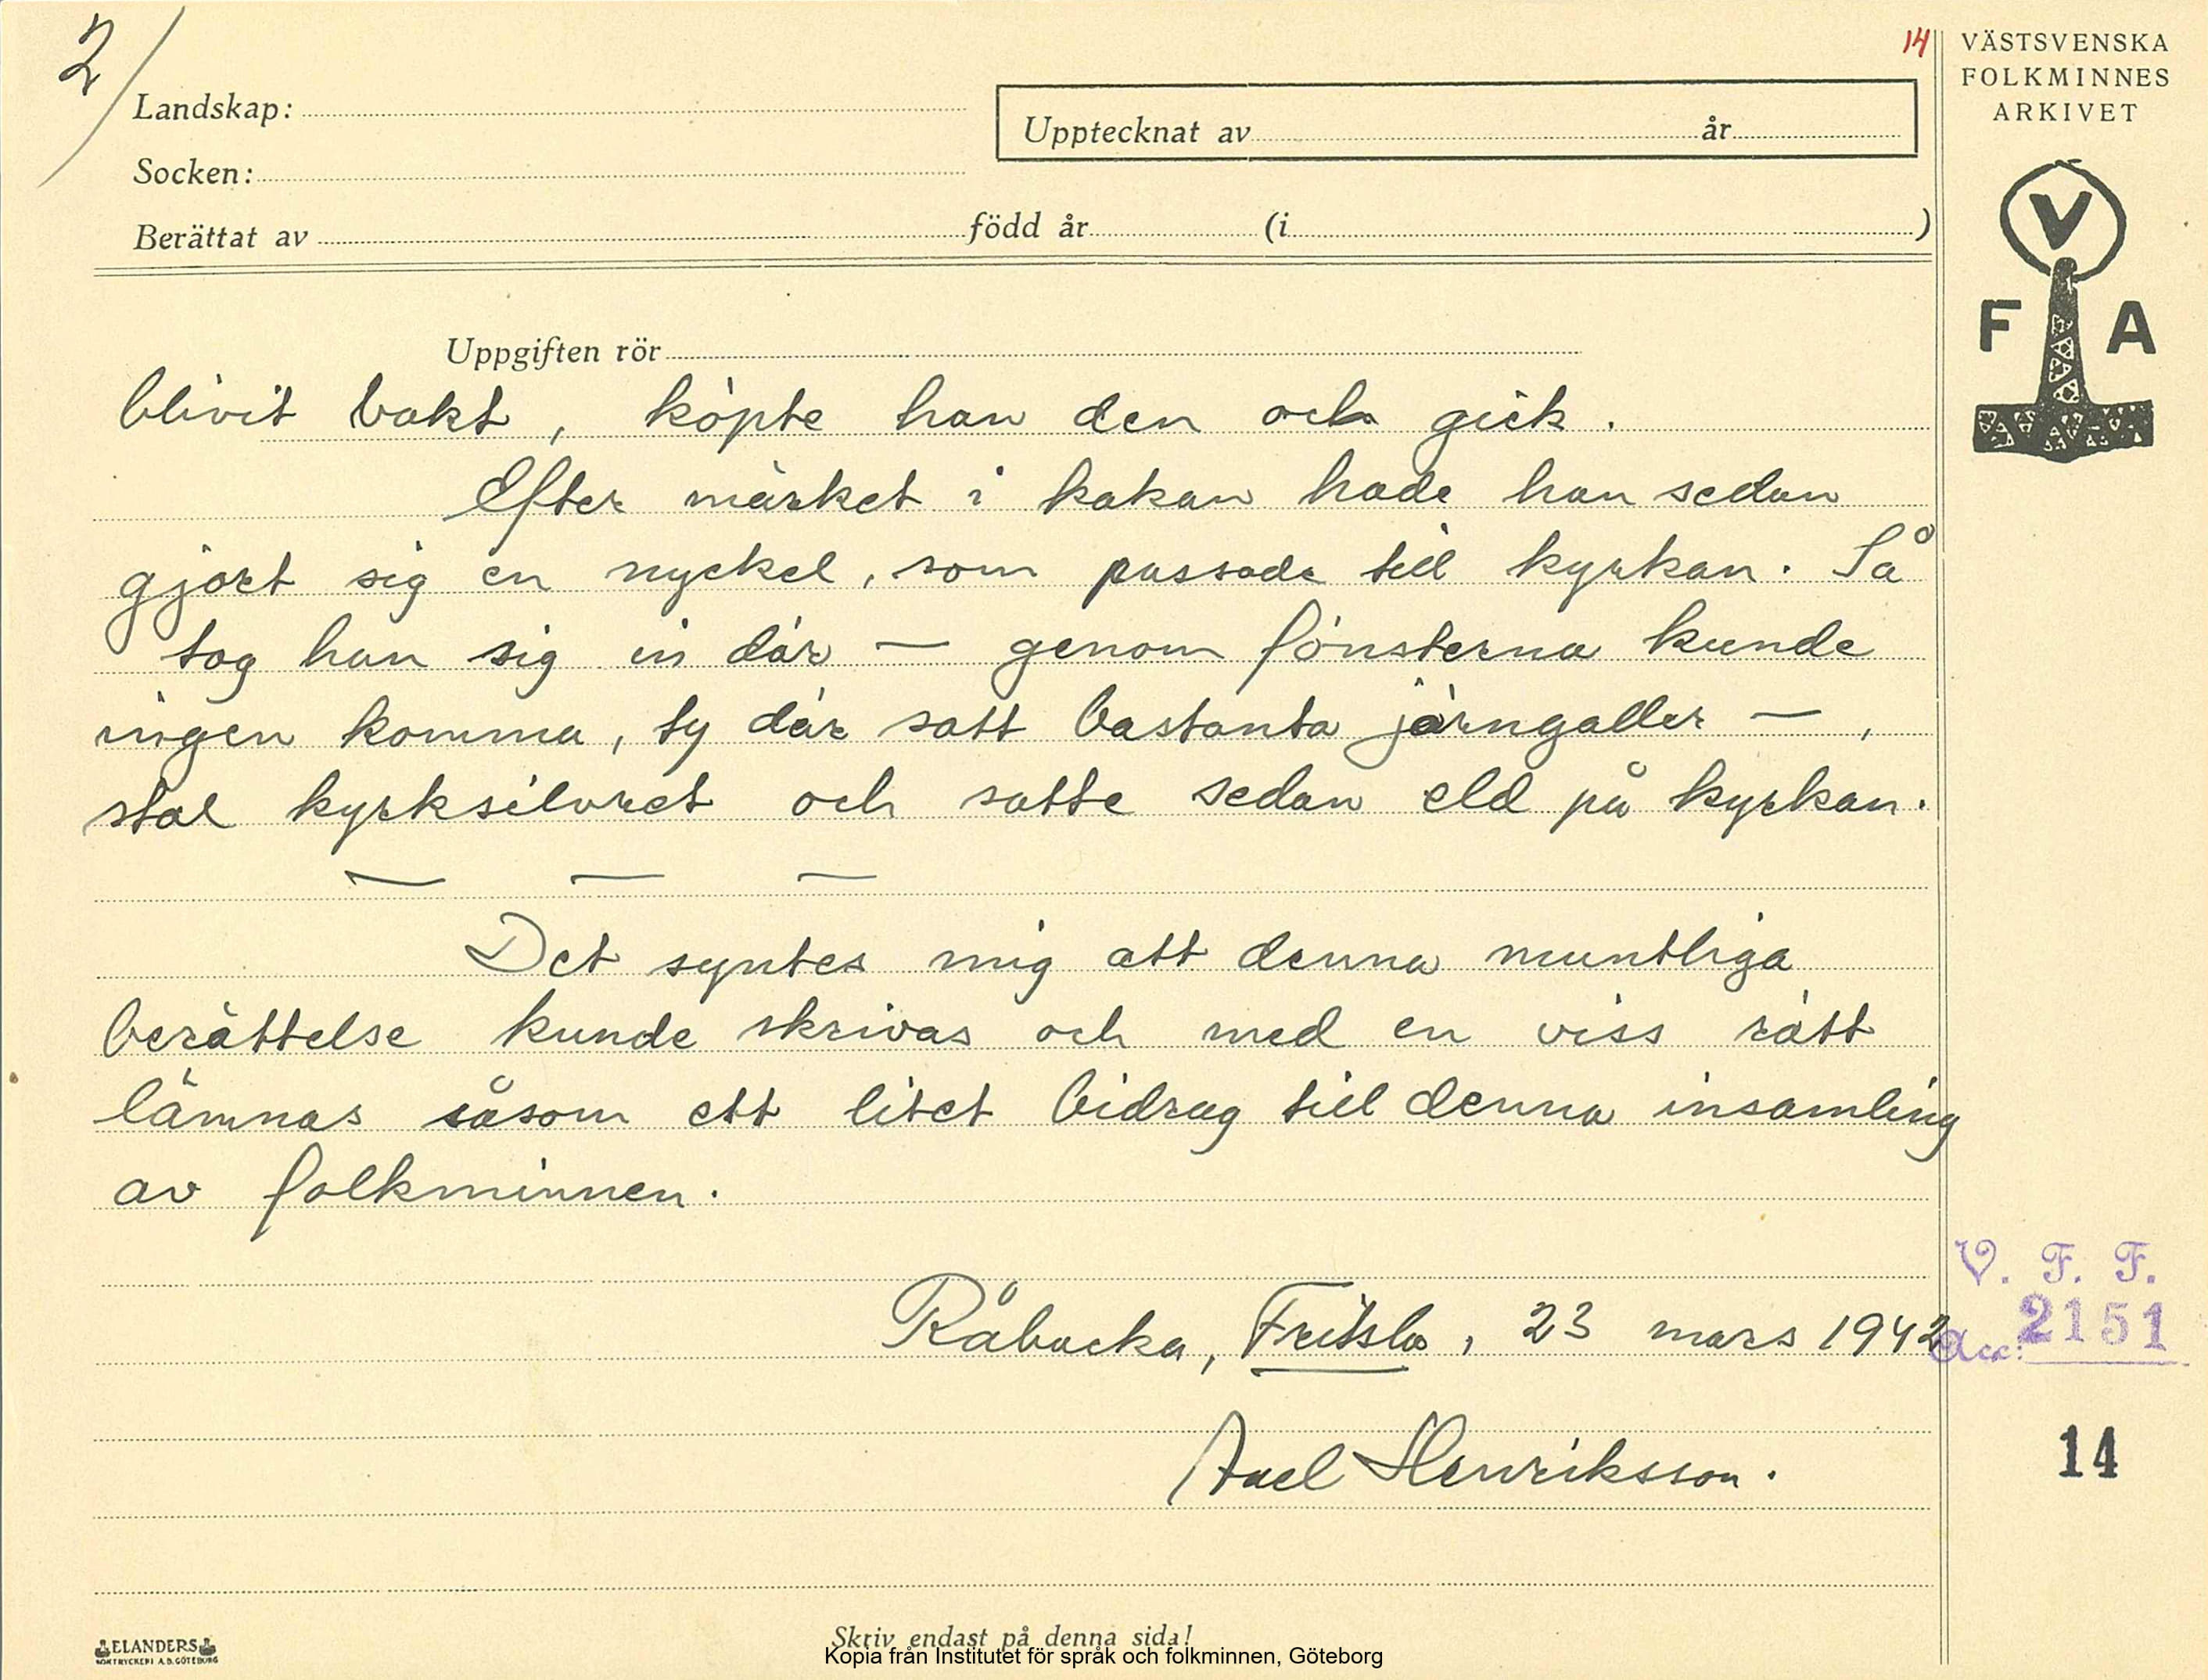 2/
14
VÄSTSVENSKA
FOLKMINNES
ARKIVET
Landskap:
Upptecknat av år
Socken:
Berättat av född år (i )
V
F A
Uppgiften rör
blivit bakt, köpte han den och gick.
Efter märket i kakan hade han sedan
gjort sig en nyckel, som passade till kyrkan. Så
tog han sig in där — genom fönsterna kunde
ingen komma, ty där satt bastanta järngaller —,
stal kyrksilvret och satte sedan eld på kyrkan.
— — —
Det syntes mig att denna muntliga
berättelse kunde skrivas och med en viss rätt
lämnas såsom ett litet bidrag till denna insamling
av folkminnen.
V. F. F.
Råbacka, Fritsla, 23 mars 1942
Acc: 2151
Axel Henriksson.
14
Skriv endast på denna sida!
ELANDERS
BOKTRYCKERI A.B. GÖTEBORG
Kopia från Institutet för språk och folkminnen, Göteborg